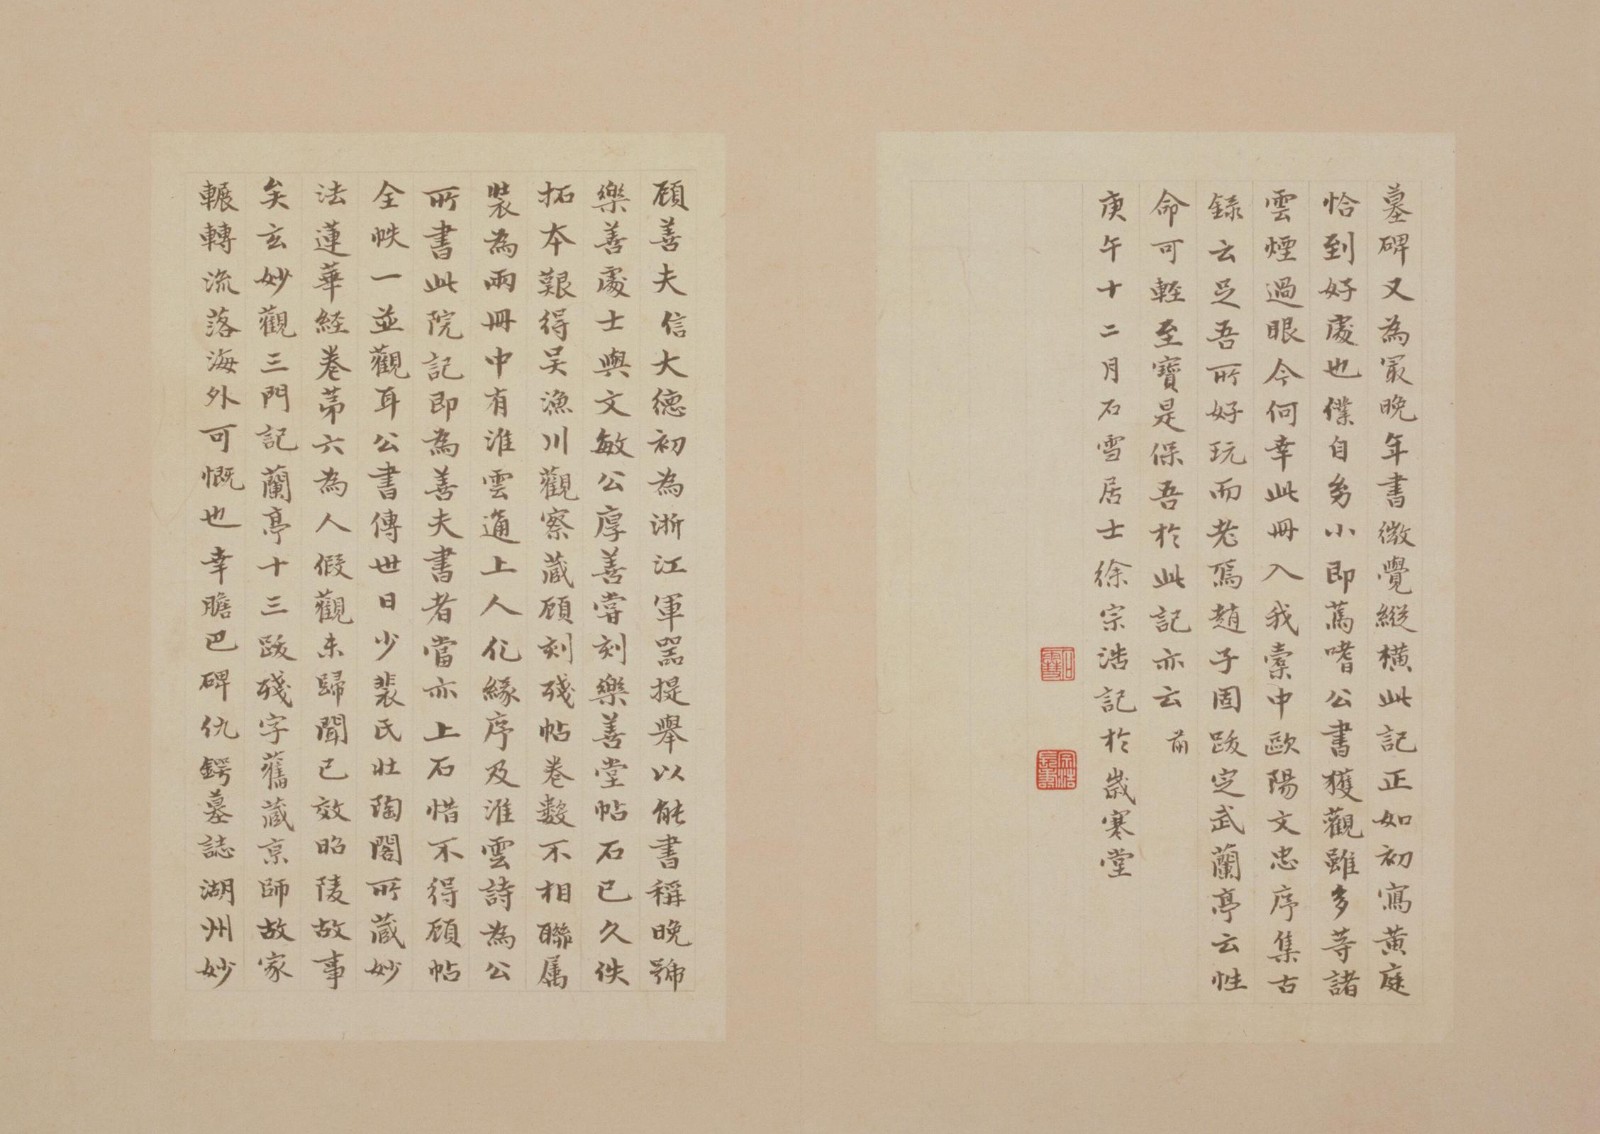 墓碑又為冣晚年書微覺縱橫此記正如初寫黃庭
恰到好處也僕自勝小即篤嗜公書獲觀雖多等諸
雲煙過眼今何幸此冊入我橐中歐陽文忠序集古
録云足吾所好玩而老焉趙子固跋定武蘭亭云性
命可輕至寶是保吾於此記亦云 前
庚午十二月石雪居士徐宗浩記於歲寒堂
石雪
宗浩長壽
顧善夫信大德初為浙江軍器提舉以能書稱晚號
樂善處士與文敏公厚善嘗刻樂善堂帖石已久佚
拓本艱得吴漁川觀察藏顧刻殘帖卷數不相聯属
裝為兩冊中有淮雲通上人化緣序及淮雲詩為公
所書此院記即為善夫書者當亦上石惜不得顧帖
全帙一並觀耳公書傳世日少裴氏壯陶閣所藏妙
法蓮華經卷苐六為人假觀未歸聞已效昭陵故事
矣玄妙觀三門記蘭亭十三跋殘字舊藏京師故家
輾轉流落海外可慨也幸膽巴碑仇鍔墓誌湖州妙